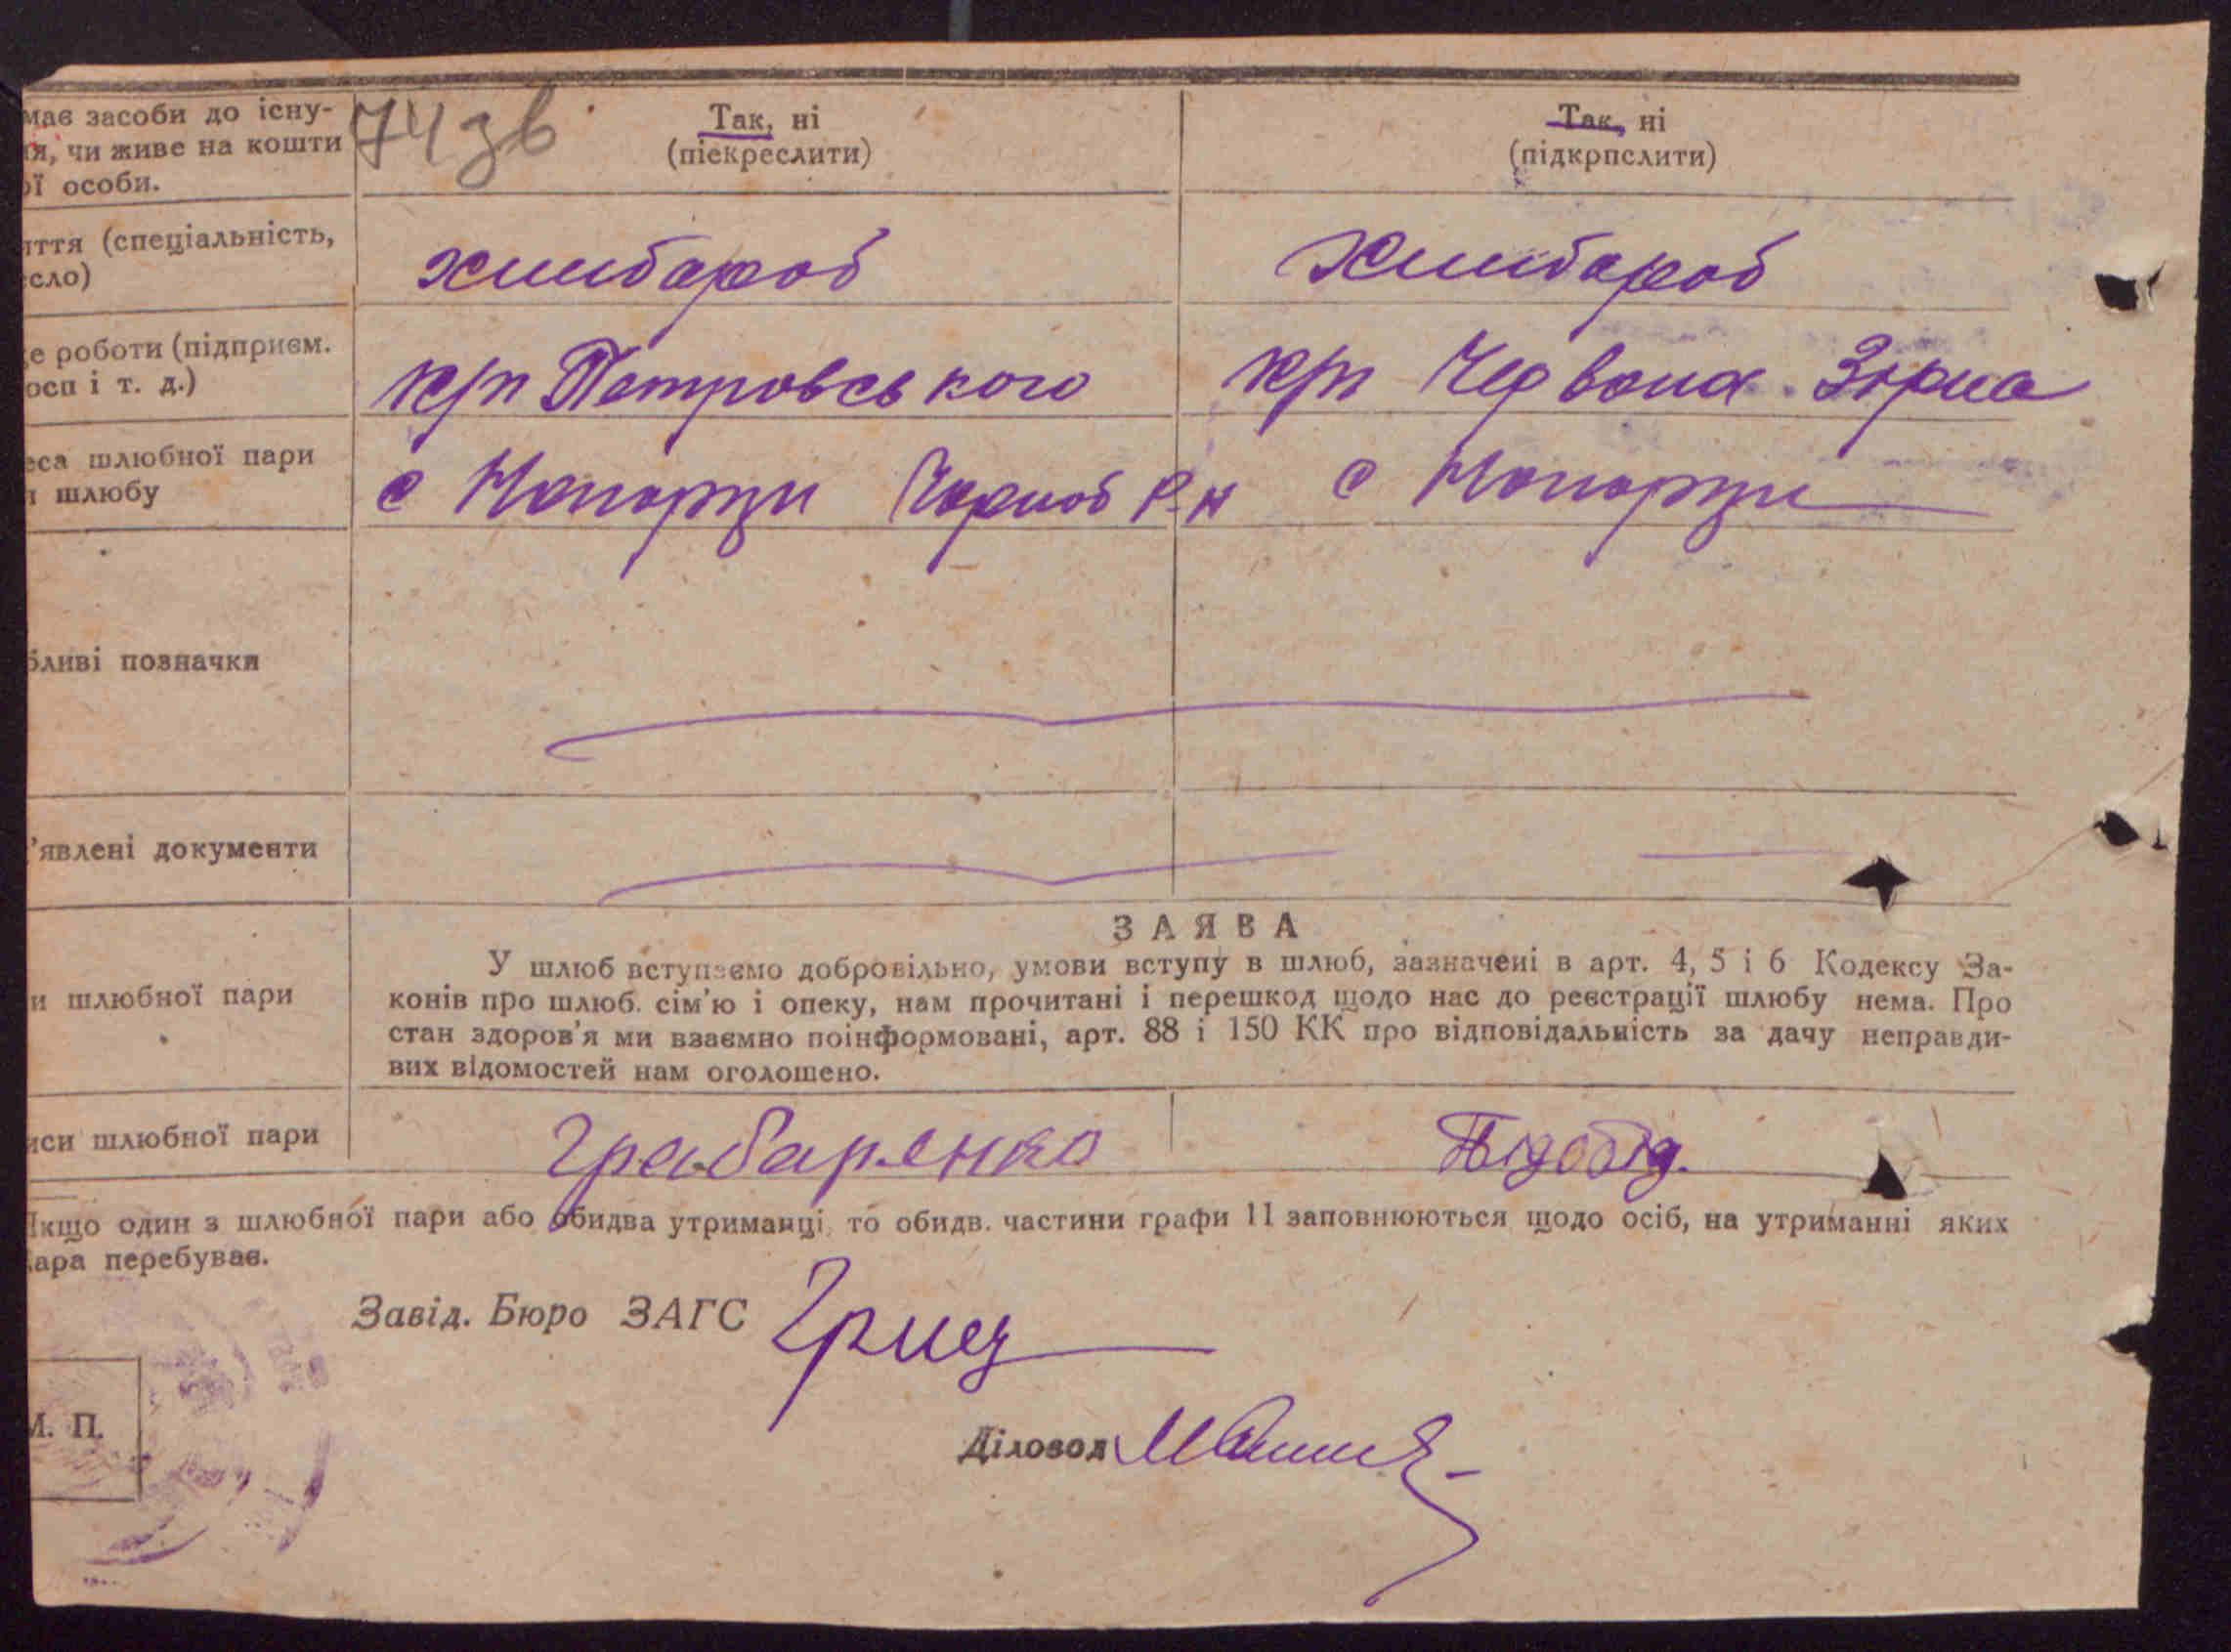 має засоби до існу-
я, чи живе на кошти
ої особи.
74 зв
Так, ні
(піекреслити)
Так, ні
(підкрпслити)
яття (спеціальність,
есло)
хлібороб
Хлібороб
це роботи (підприєм.
осп і т. д.)
к/г Петровського
к/г Червона Зірка
еса шлюбної пари
я шлюбу
с Нопорзи Чорноб Р-н
с Нопорзи
бливі позначки
'явлені документи
ЗАЯВА
и шлюбної пари
У шлюб вступаємо добровільно, умови вступу в шлюб, зазначені в арт. 4, 5 і 6 Кодексу За-
конів про шлюб. сім'ю і опеку, нам прочитані і перешкод щодо нас до реєстрації шлюбу нема. Про
стан здоров'я ми взаємно поінформовані, арт. 88 і 150 КК про відповідальність за дачу неправди-
вих відомостей нам оголошено.
иси шлюбної пари
Грабаренко
Підобід.
Якщо один з шлюбної пари або обидва утриманці, то обидв. частини графи 11 заповнюються щодо осіб, на утриманні яких
пара перебуває.
Завід. Бюро ЗАГС Гриц
М. П.
Діловод